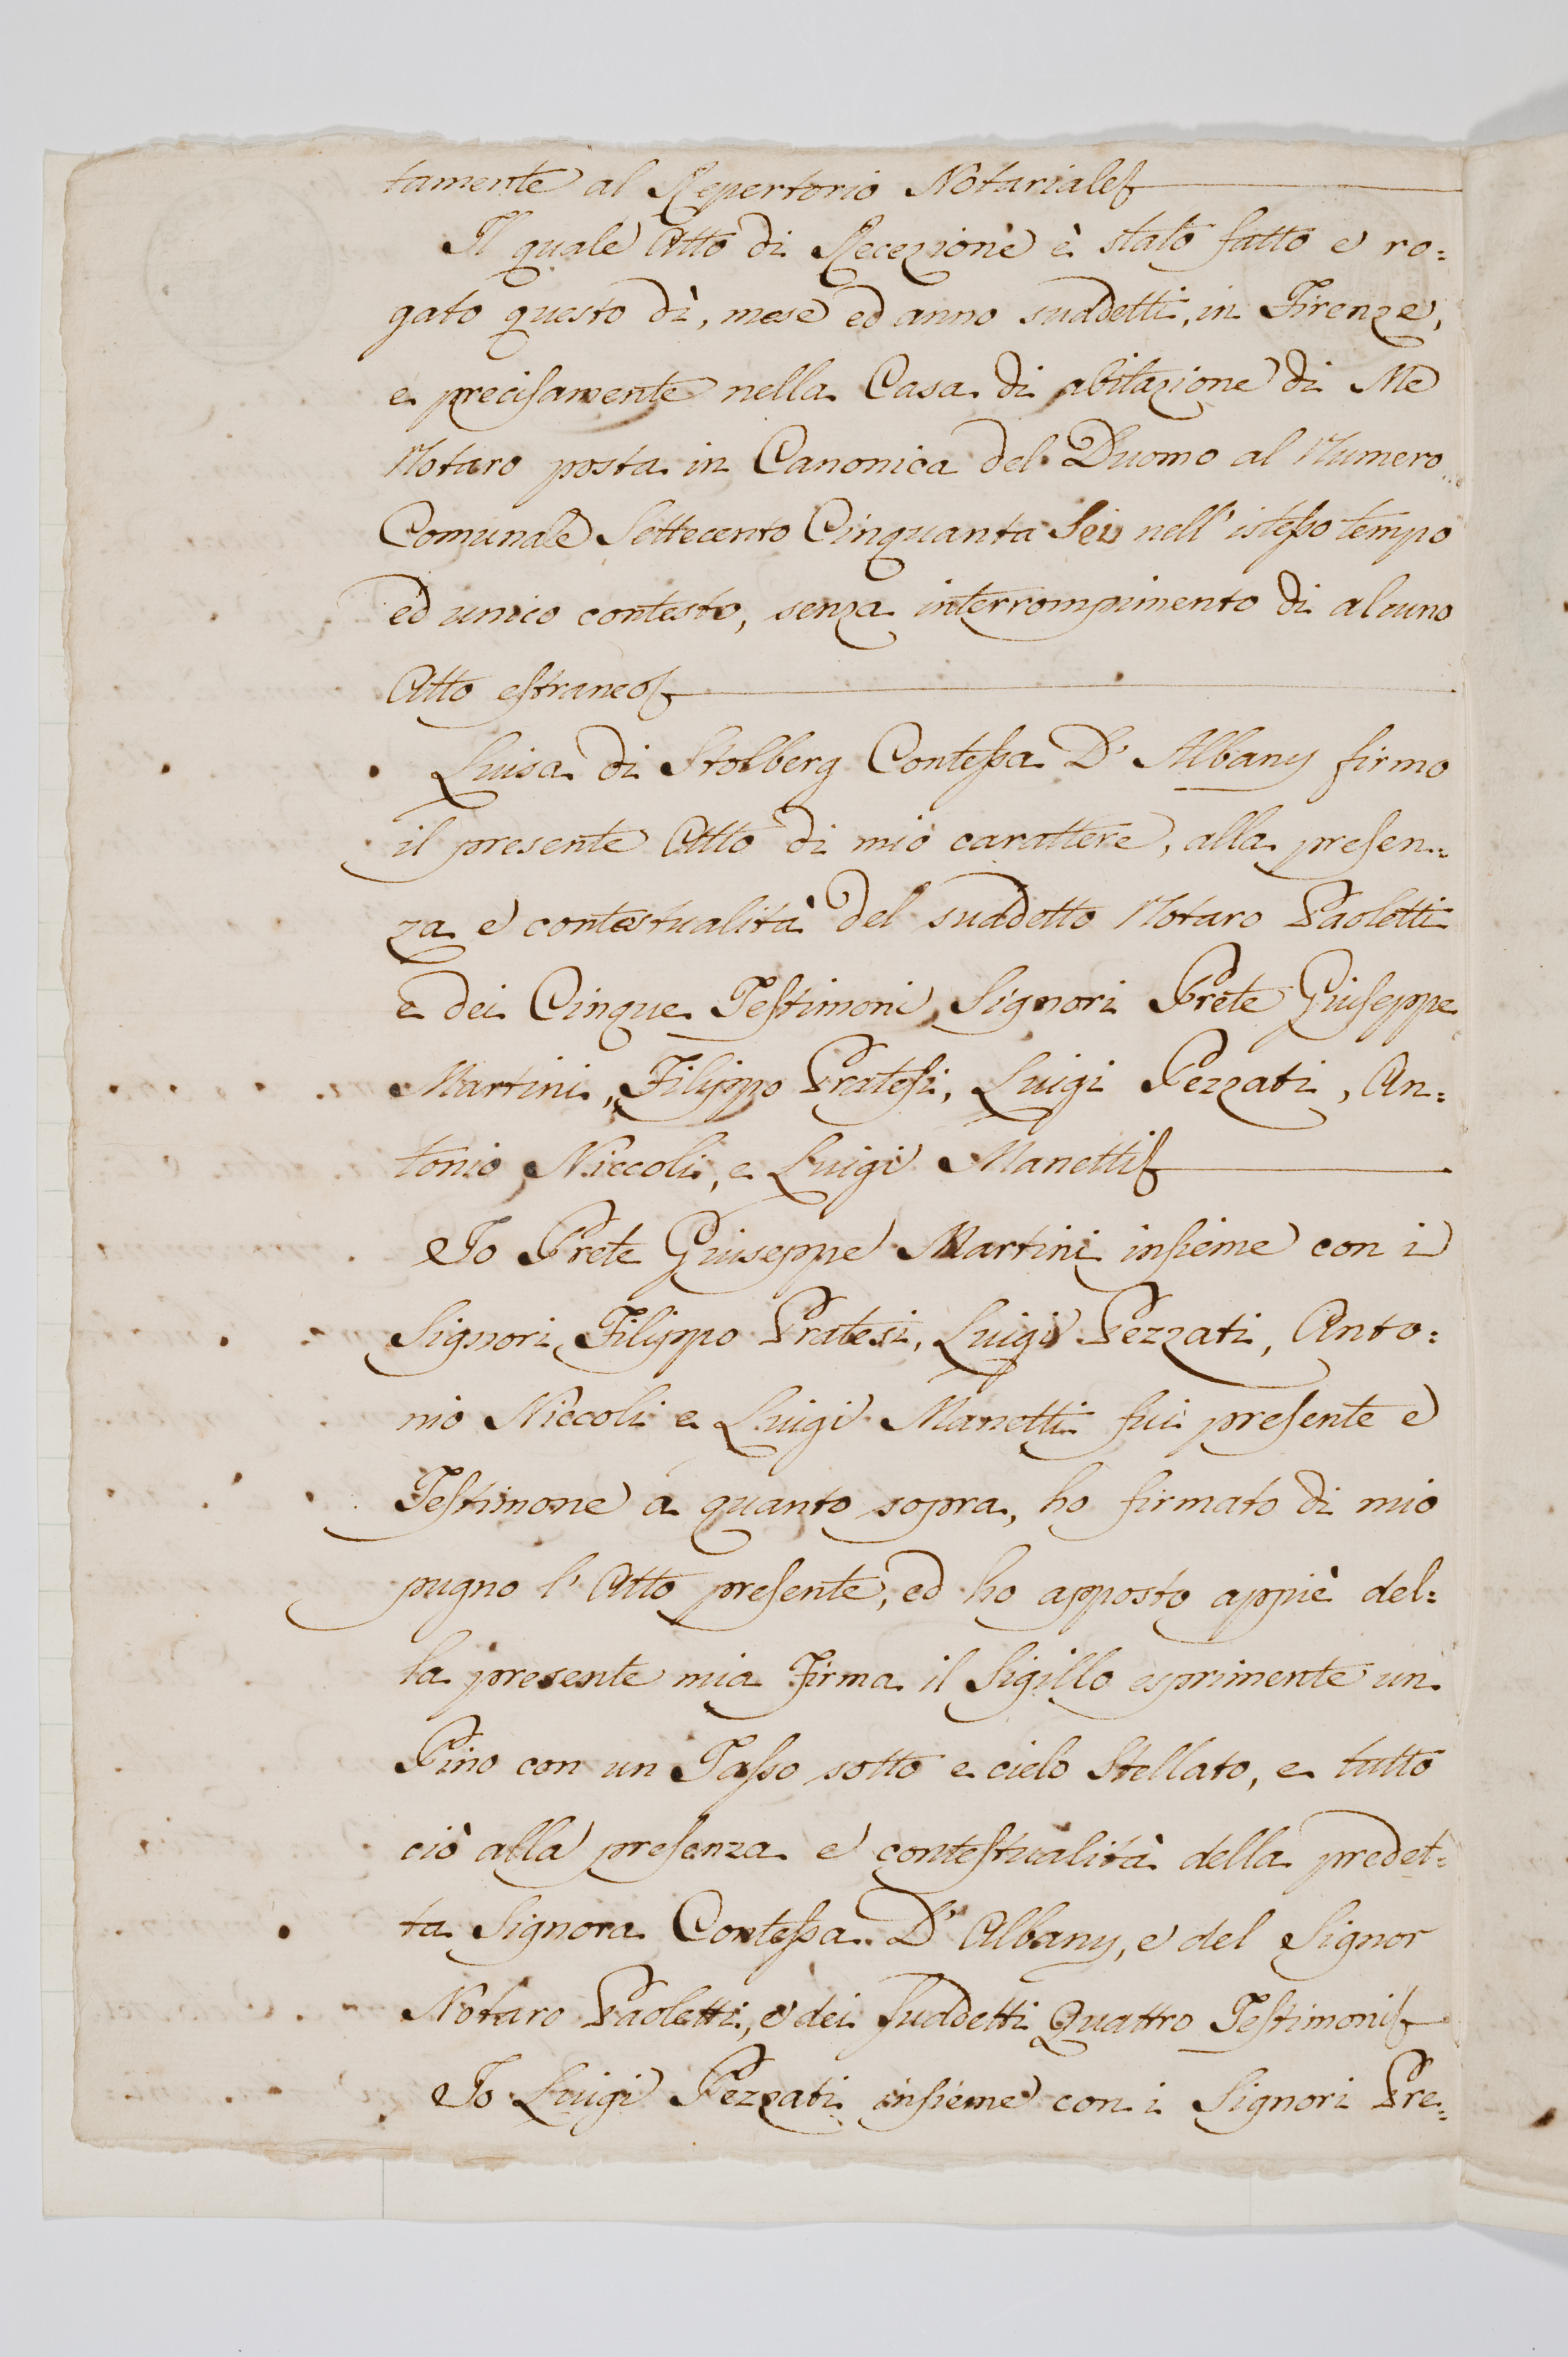 tamente al Repertorio Notariale
Il quale Atto di Recezione è stato fatto e ro=
gato questo dì, mese ed anno suddetti, in Firenze,
e precisamente nella Casa di abitazione di Me
Notaro posta in Canonica del Duomo al Numero
Comunale Settecento Cinquanta Sei nell'istesso tempo
ed unico contesto, senza interrompimento di alcuno
Atto estraneo
Luisa di Stolberg Contessa D'Albany firmo
il presente Atto di mio carattere, alla presen=
za e contestualità del suddetto Notaro Paoletti
e dei Cinque Testimoni Signori Prete Giuseppe
Martini, Filippo Pratesi, Luigi Pezzati, An=
tonio Niccoli, e Luigi Manetti
Io Prete Giuseppe Martini insieme con i
Signori Filippo Pratesi, Luigi Pezzati, Anto=
nio Niccoli e Luigi Manetti fui presente e
Testimone a quanto sopra, ho firmato di mio
pugno l'Atto presente, ed ho apposto appiè del=
la presente mia Firma il Sigillo esprimente un
Pino con un Tasso sotto e cielo Stellato, e tutto
ciò alla presenza e contestualità della predet=
ta Signora Contessa D'Albany, e del Signor
Notaro Paoletti, e dei suddetti Quattro Testimoni
Io Luigi Pezzati insieme con i Signori Pre=